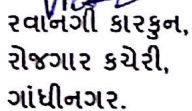 રવાનગી કારકુન,
રોજગાર કચેરી,
ગાંધીનગર.